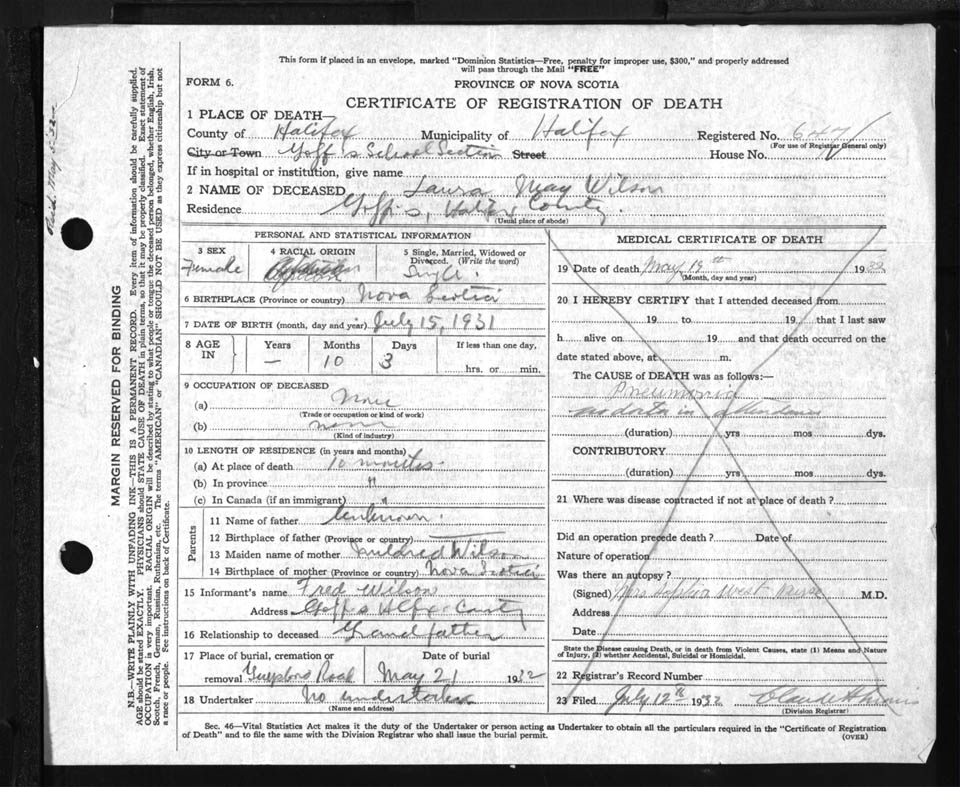 This form if placed in an envelope, marked "Dominion Statistics—Free, penalty for improper use, $300," and properly addressed
will pass through the Mail "FREE"
FORM 6.
PROVINCE OF NOVA SCOTIA
CERTIFICATE OF REGISTRATION OF DEATH
1 PLACE OF DEATH—
County of Halifax Municipality of Halifax Registered No.
(For use of Registrar General only)
City or Town Goff's School Section Street House No.
If in hospital or institution, give name
2 NAME OF DECEASED Laura May Wilson
Residence Goff's, Halifax County.
(Usual place of abode)
PERSONAL AND STATISTICAL INFORMATION
3 SEX Female
4 RACIAL ORIGIN
5 Single, Married, Widowed or Divorced. (Write the word) Single.
6 BIRTHPLACE (Province or country) Nova Scotia
7 DATE OF BIRTH (month, day and year) July 15, 1931
8 AGE IN Years — Months 10 Days 3 If less than one day, hrs. or min.
9 OCCUPATION OF DECEASED
(a) None
(Trade or occupation or kind of work)
(b) none
(Kind of industry)
10 LENGTH OF RESIDENCE (in years and months)
(a) At place of death 10 months
(b) In province "
(c) In Canada (if an immigrant) "
Parents
11 Name of father Unknown.
12 Birthplace of father (Province or country) —
13 Maiden name of mother Mildred Wilson
14 Birthplace of mother (Province or country) Nova Scotia
15 Informant's name Fred Wilson
Address Goff's Hlfx County
16 Relationship to deceased Grandfather
17 Place of burial, cremation or removal Guysboro Road
Date of burial May 21 1932
18 Undertaker No undertaker
(Name and address)
MEDICAL CERTIFICATE OF DEATH
19 Date of death May 18th 1932
(Month, day and year)
20 I HEREBY CERTIFY that I attended deceased from
19 to 19 that I last saw
h alive on 19 and that death occurred on the
date stated above, at m.
The CAUSE of DEATH was as follows:—
Pneumonia
no doctor in attendance
(duration) yrs mos dys.
CONTRIBUTORY
(duration) yrs mos dys.
21 Where was disease contracted if not at place of death?
Did an operation precede death? Date of
Nature of operation
Was there an autopsy?
(Signed) Mrs Sophia West Nurse M.D.
Address
Date
State the Disease causing Death, or in death from Violent Causes, state (1) Means and Nature
of Injury, (2) whether Accidental, Suicidal or Homicidal.
22 Registrar's Record Number
23 Filed July 12th 1932
(Division Registrar)
Sec. 46—Vital Statistics Act makes it the duty of the Undertaker or person acting as Undertaker to obtain all the particulars required in the "Certificate of Registration
of Death" and to file the same with the Division Registrar who shall issue the burial permit.
(OVER)
MARGIN RESERVED FOR BINDING
N.B.—WRITE PLAINLY WITH UNFADING INK—THIS IS A PERMANENT RECORD. Every item of information should be carefully supplied.
AGE should be stated EXACTLY. PHYSICIANS should STATE CAUSE OF DEATH in plain terms, so that it may be properly classified. Exact statement of
OCCUPATION is very important. RACIAL ORIGIN will be described by stating to what people or tongue the deceased person belonged, whether English, Irish,
Scotch, French, German, Russian, Ruthenian, etc. The terms "AMERICAN" or "CANADIAN" SHOULD NOT BE USED as they express citizenship but not
a race or people. See instructions on back of Certificate.